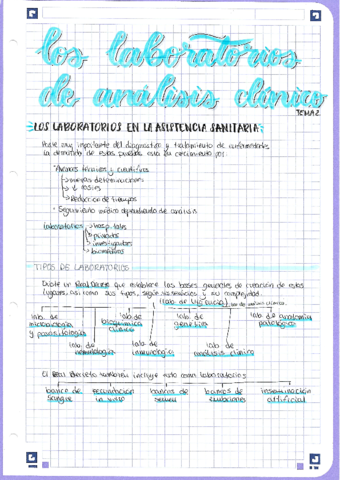 los laboratorios
de análisis clínico
TEMA 2
LOS LABORATORIOS EN LA ASISTENCIA SANITARIA:
Parte muy importante del diagnóstico y tratamiento de enfermedades
la demanda de estas pruebas está en crecimiento por:
• Avances técnicos y científicos
↳ nuevas determinaciones
↳ costes
↳ Reducción de tiempos
• Seguimiento médico dependiendo de analisis
laboratorios
hospitales
privados
investigación
TIPOS DE LABORATORIOS
Existe un Real Decreto que establece las bases generales de creación de estos
lugares, así como sus tipos, según
lab. de
microbiología
y parasitología
lab. de
bioquímica
clínica
lab. de
genética
lab. de anatomía
patológica
lab. de
hematología
lab. de
inmunología
lab. de
análisis clínico
El Real Decreto también incluye esto como laboratorios:
banco de
sangre
fecundación
in vitro
bancos de
semen
bancos de
embriones
inseminación
artificial